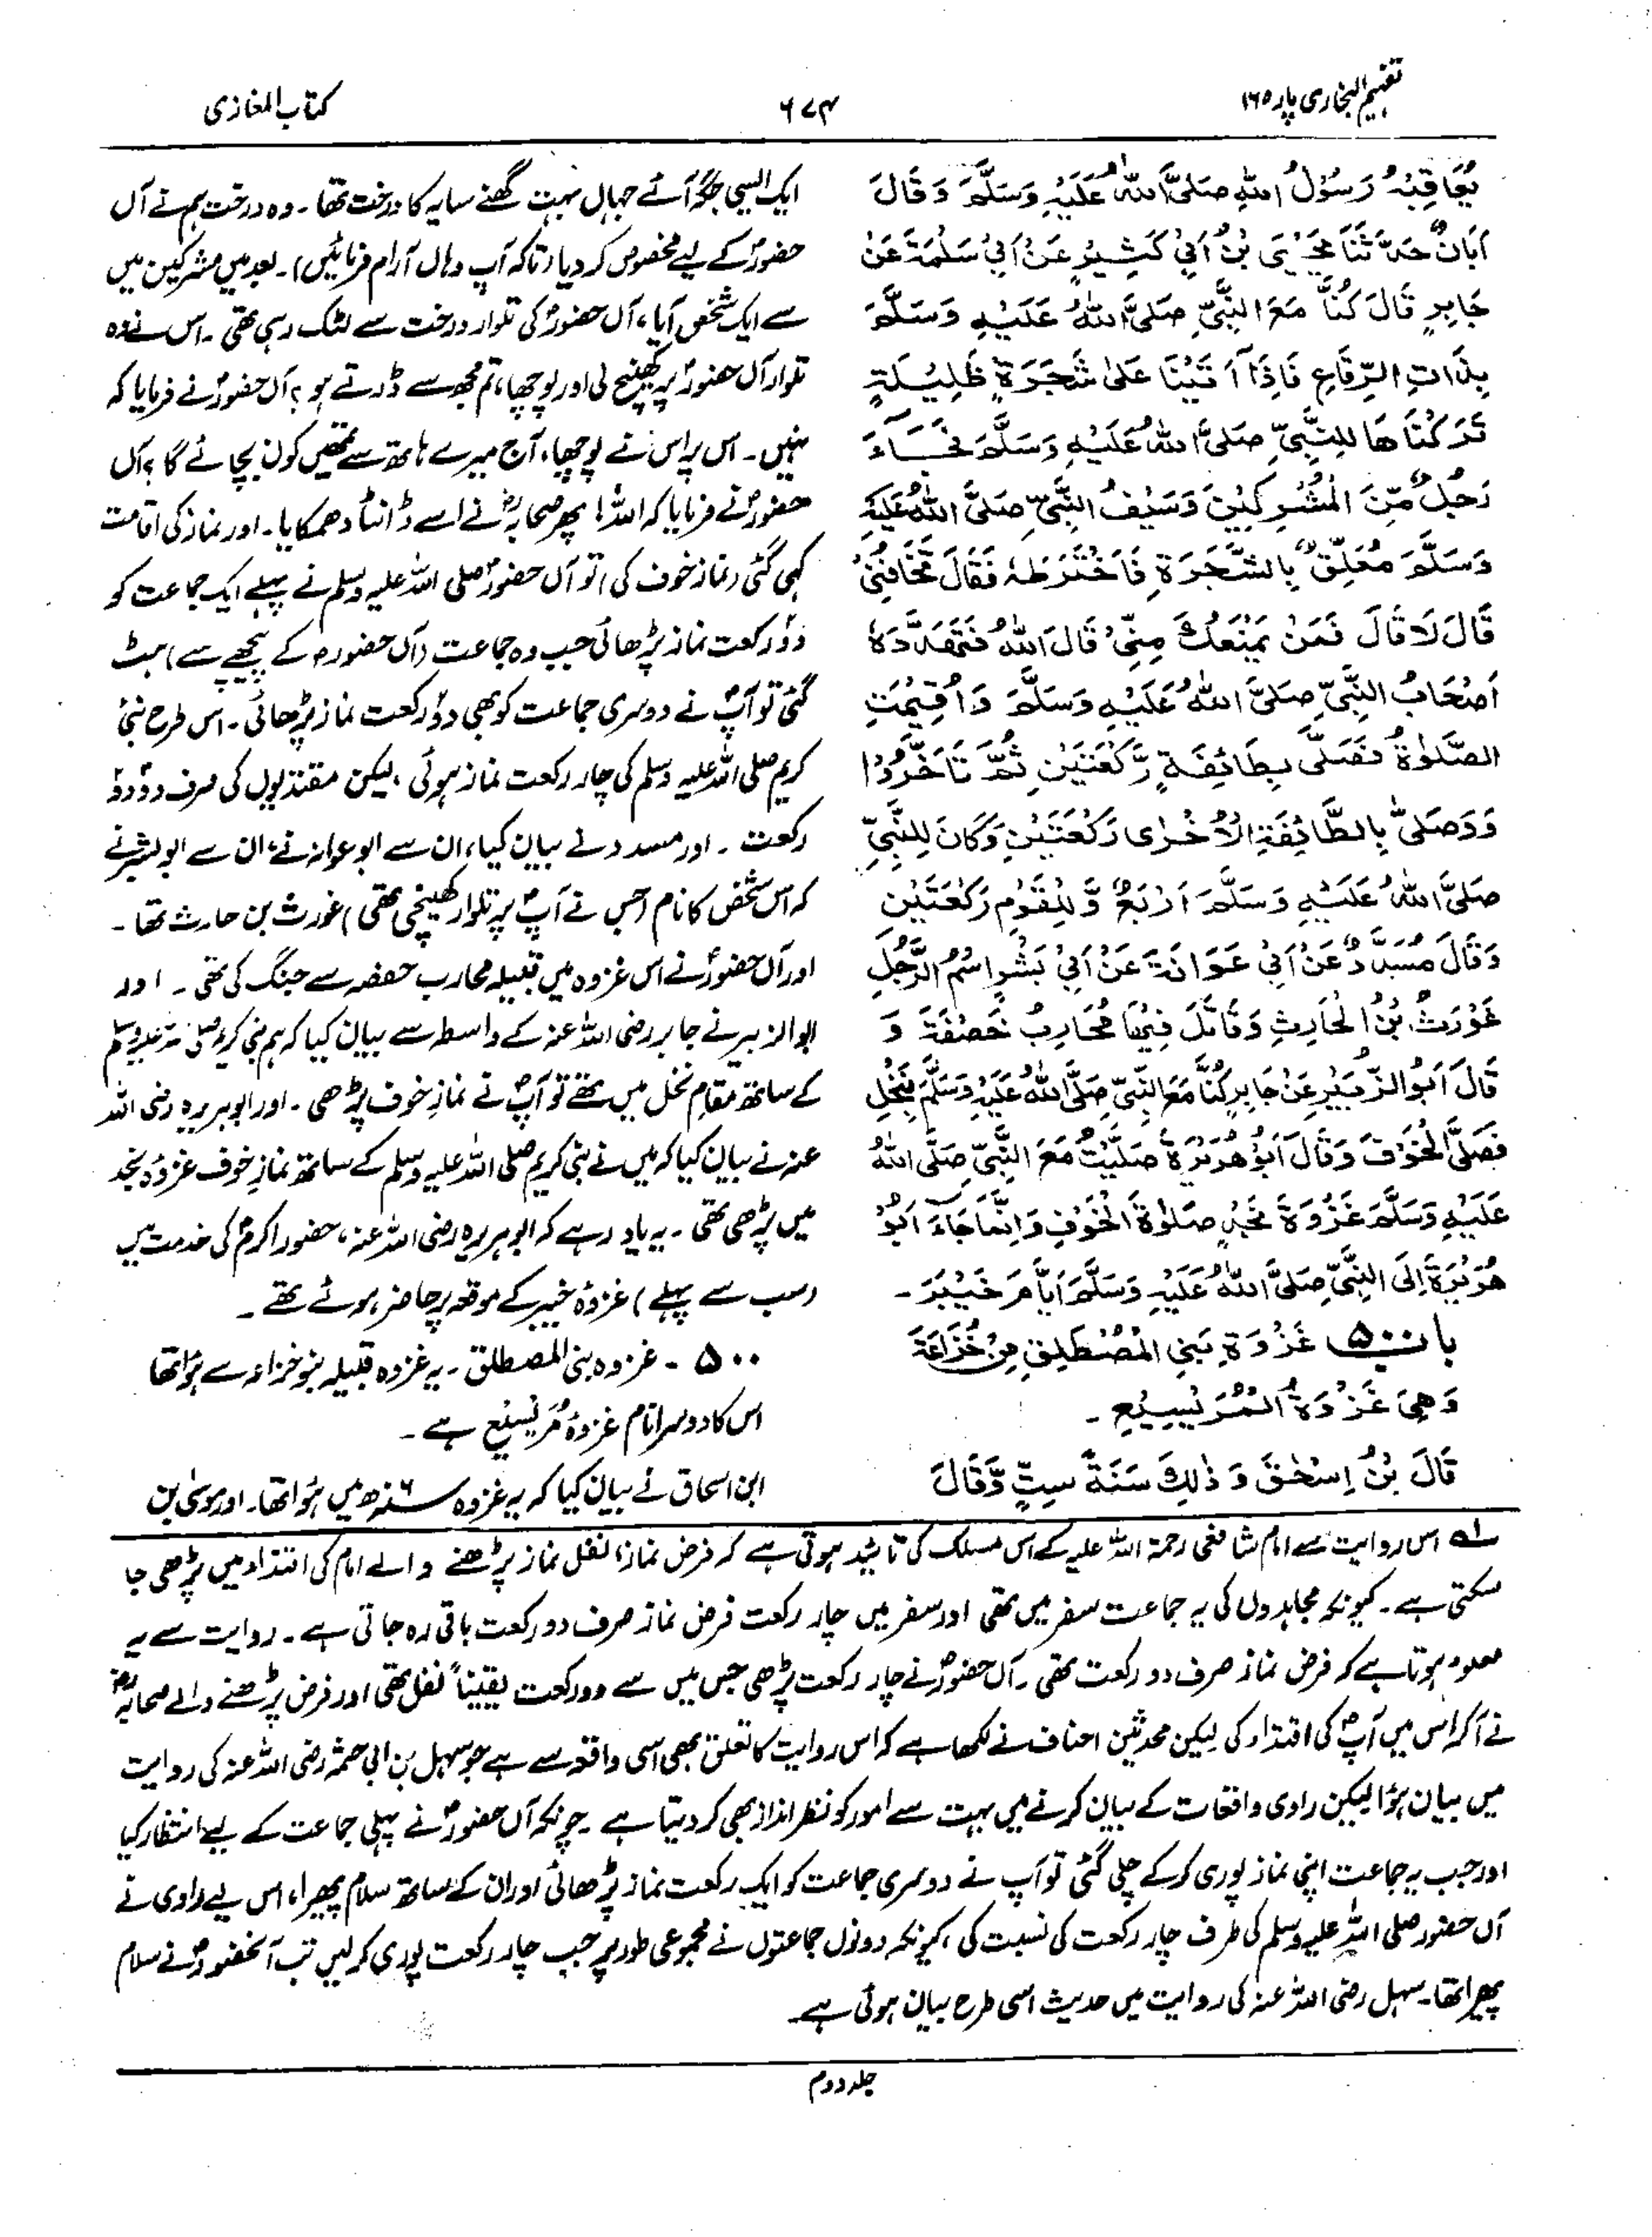 تفہیم البخاری پارہ ۱۶
۶۷۴
کتاب المغازی
يُعَاقِبْهُ رَسُوْلُ اللهِ صَلَّى اللهُ عَلَيْهِ وَسَلَّمَ وَقَالَ
اَبَانٌ حَدَّثَنَا يَحْيَى بْنُ اَبِيْ كَثِيْرٍ عَنْ اَبِيْ سَلَمَةَ عَنْ
جَابِرٍ قَالَ كُنَّا مَعَ النَّبِيِّ صَلَّى اللهُ عَلَيْهِ وَسَلَّمَ
بِذَاتِ الرِّقَاعِ فَاِذَا اَتَيْنَا عَلٰى شَجَرَةٍ ظَلِيْلَةٍ
تَرَكْنَاهَا لِلنَّبِيِّ صَلَّى اللهُ عَلَيْهِ وَسَلَّمَ فَجَاءَ
رَجُلٌ مِّنَ الْمُشْرِكِيْنَ وَسَيْفُ النَّبِيِّ صَلَّى اللهُ عَلَيْهِ
وَسَلَّمَ مُعَلَّقٌ بِالشَّجَرَةِ فَاخْتَرَطَهٗ فَقَالَ تَخَافُنِيْ
قَالَ لَا قَالَ فَمَنْ يَمْنَعُكَ مِنِّيْ قَالَ اللهُ فَتَهَدَّدَهٗ
اَصْحَابُ النَّبِيِّ صَلَّى اللهُ عَلَيْهِ وَسَلَّمَ وَاُقِيْمَتِ
الصَّلٰوةُ فَصَلّٰى بِطَائِفَةٍ رَّكْعَتَيْنِ ثُمَّ تَاَخَّرُوْا
وَصَلّٰى بِالطَّائِفَةِ الْاُخْرٰى رَكْعَتَيْنِ وَكَانَ لِلنَّبِيِّ
صَلَّى اللهُ عَلَيْهِ وَسَلَّمَ اَرْبَعٌ وَّلِلْقَوْمِ رَكْعَتَيْنِ
وَقَالَ مُسَدَّدٌ عَنْ اَبِيْ عَوَانَةَ عَنْ اَبِيْ بَشْرٍ اسْمُ الرَّجُلِ
غَوْرَثُ بْنُ الْحَارِثِ وَقَاتَلَ فِيْهَا مُحَارِبُ خَصَفَةَ وَ
قَالَ اَبُو الزُّبَيْرِ عَنْ جَابِرٍ كُنَّا مَعَ النَّبِيِّ صَلَّى اللهُ عَلَيْهِ وَسَلَّمَ بِنَخْلٍ
فَصَلَّى الْخَوْفَ وَقَالَ اَبُوْ هُرَيْرَةَ صَلَّيْتُ مَعَ النَّبِيِّ صَلَّى اللهُ
عَلَيْهِ وَسَلَّمَ غَزْوَةَ نَجْدٍ صَلٰوةَ الْخَوْفِ وَاِنَّمَا جَاءَ اَبُوْ
هُرَيْرَةَ اِلَى النَّبِيِّ صَلَّى اللهُ عَلَيْهِ وَسَلَّمَ اَيَّامَ خَيْبَرَ۔
باب ۵۰۰ غَزْوَةِ بَنِي الْمُصْطَلِقِ مِنْ خُزَاعَةَ
وَهِيَ غَزْوَةُ الْمُرَيْسِيْعِ۔
قَالَ بْنُ اِسْحٰقَ وَذٰلِكَ سَنَةَ سِتٍّ وَّقَالَ
ایک ایسی جگہ آئے جہاں بہت گھنے سایہ کا درخت تھا۔ وہ درخت ہم نے آں
حضورؐ کے لیے مخصوص کر دیا (تاکہ آپ وہاں آرام فرمائیں)۔ بعد میں مشرکین میں
سے ایک شخص آیا، آں حضورؐ کی تلوار درخت سے لٹک رہی تھی۔ اس نے وہ
تلوار آں حضورؐ پر کھینچ لی اور پوچھا، تم مجھ سے ڈرتے ہو؟ آں حضورؐ نے فرمایا کہ
نہیں۔ اس پر اس نے پوچھا، آج میرے ہاتھ سے تمھیں کون بچائے گا؟ آں
حضورؐ نے فرمایا کہ اللہ! پھر صحابہؓ نے اسے ڈانٹا دھمکایا۔ اور نماز کی اقامت
کہی گئی (نماز خوف کی) تو آں حضور صلی اللہ علیہ وسلم نے پہلے ایک جماعت کو
دو رکعت نماز پڑھائی جب وہ جماعت (آں حضورؐ کے پیچھے سے) ہٹ
گئی تو آپؐ نے دوسری جماعت کو بھی دو رکعت نماز پڑھائی۔ اس طرح نبی
کریم صلی اللہ علیہ وسلم کی چار رکعت نماز ہوئی، لیکن مقتدیوں کی صرف دو دو
رکعت۔ اور مسدد نے بیان کیا، ان سے ابو عوانہ نے، ان سے ابو بشر نے
کہ اس شخص کا نام (جس نے آپؐ پر تلوار کھینچی تھی) غورث بن حارث تھا۔
اور آں حضورؐ نے اس غزوہ میں قبیلہ محارب خصفہ سے جنگ کی تھی۔ اور
ابو الزبیر نے جابر رضی اللہ عنہ کے واسطہ سے بیان کیا کہ ہم نبی کریم صلی اللہ علیہ وسلم
کے ساتھ مقامِ نخل میں تھے تو آپؐ نے نمازِ خوف پڑھی۔ اور ابو ہریرہ رضی اللہ
عنہ نے بیان کیا کہ میں نے نبی کریم صلی اللہ علیہ وسلم کے ساتھ نمازِ خوف غزوۂ نجد
میں پڑھی تھی۔ یہ یاد رہے کہ ابو ہریرہ رضی اللہ عنہ، حضور اکرمؐ کی خدمت میں
(سب سے پہلے) غزوۂ خیبر کے موقعہ پر حاضر ہوئے تھے۔
۵۰۰ - غزوہ بنی المصطلق۔ یہ غزوہ قبیلہ بنو خزاعہ سے ہوا تھا
اس کا دوسرا نام غزوۂ مُرَیسیع ہے۔
ابن اسحاق نے بیان کیا کہ یہ غزوہ سنہ ۶ ھ میں ہوا تھا۔ اور موسیٰ بن
لہ اس روایت سے امام شافعی رحمۃ اللہ علیہ کے اس مسلک کی تائید ہوتی ہے کہ فرض نماز، نفل نماز پڑھنے والے امام کی اقتداء میں پڑھی جا
سکتی ہے۔ کیونکہ مجاہدوں کی یہ جماعت سفر میں تھی اور سفر میں چار رکعت فرض نماز صرف دو رکعت باقی رہ جاتی ہے۔ روایت سے یہ
معلوم ہوتا ہے کہ فرض نماز صرف دو رکعت تھی۔ آں حضورؐ نے چار رکعت پڑھی جس میں سے دو رکعت یقیناً نفل تھی اور فرض پڑھنے والے صحابہؓ
نے آکر اس میں آپؐ کی اقتداء کی لیکن محدثین احناف نے لکھا ہے کہ اس روایت کا تعلق بھی اسی واقعہ سے ہے جو سہل بن ابی حثمہ رضی اللہ عنہ کی روایت
میں بیان ہوا لیکن راوی واقعات کے بیان کرنے میں بہت سے امور کو نظر انداز بھی کر دیتا ہے۔ چونکہ آں حضورؐ نے پہلی جماعت کے لیے انتظار کیا
اور جب یہ جماعت اپنی نماز پوری کر کے چلی گئی تو آپ نے دوسری جماعت کو ایک رکعت نماز پڑھائی اور ان کے ساتھ سلام پھیرا، اس لیے راوی نے
آں حضور صلی اللہ علیہ وسلم کی طرف چار رکعت کی نسبت کی، کیونکہ دونوں جماعتوں نے مجموعی طور پر جب چار رکعت پوری کر لیں تب آنحضورؐ نے سلام
پھیرا تھا۔ سہل رضی اللہ عنہ کی روایت میں حدیث اسی طرح بیان ہوئی ہے۔
جلد دوم